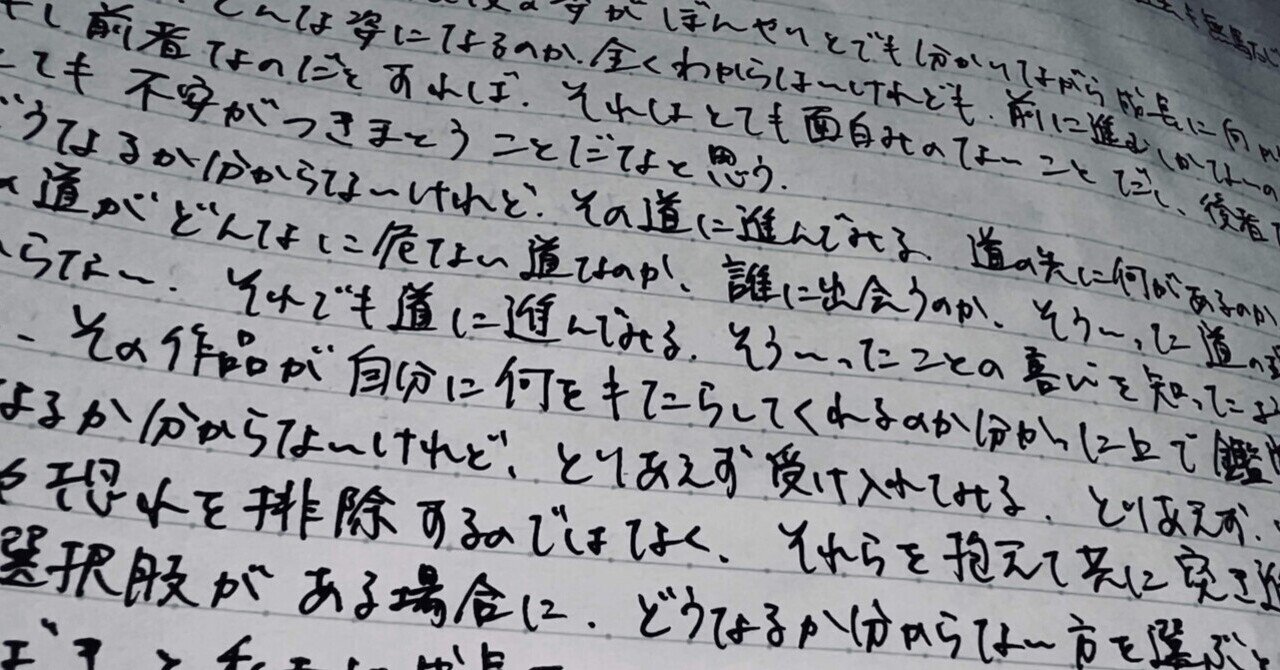 がぼんやりとでも分かってながら成長に向
どんな姿になるのか、全くわからないけれども、前に進むしかないの
前者なのだとすれば、それはとても面白みのないことだし、後者
ても不安がつきまとうことだなと思う。
うなるか分からないけれど、その道に進んでみる。道の先に何があるのか
道がどんなに危ない道なのか、誰に出会うのか、そういった道の
らない。それでも道に進んでみる。そういったことの喜びを知った
、その作品が自分に何をもたらしてくれるのか分かった上で鑑
なるか分からないけれど、とりあえず受け入れてみる。とりあえず、
恐れを排除するのではなく、それらを抱えて共に突き進
選択肢がある場合に、どうなるか分からない方を選ぶ